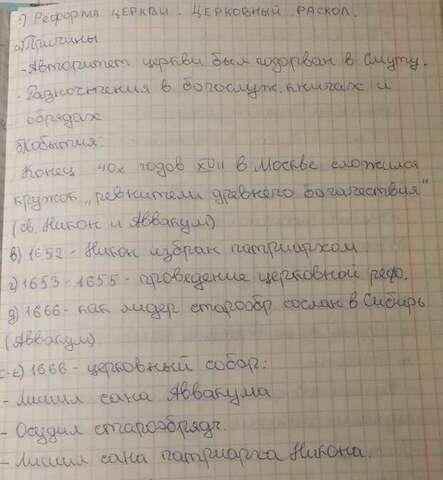 1) Реформа церкви. Церковный раскол.
а) Причины
- Авторитет церкви был подорван в Смуту.
- Разночтения в богослуж. книгах и
обрядах
б) События:
Конец 40х годов XVII в Москве сложился
кружок "ревнители древнего богачествия"
(св. Никон и Аввакум)
в) 1652 - Никон избран патриархом.
г) 1653-1655 - проведение церковной рефо.
д) 1666 - как лидер старообр. сослан в Сибирь
(Аввакум)
е) 1666 - церковный собор:
- Лишил сана Аввакума
- Осудил старообрядч.
- Лишил сана патриарха Никона.